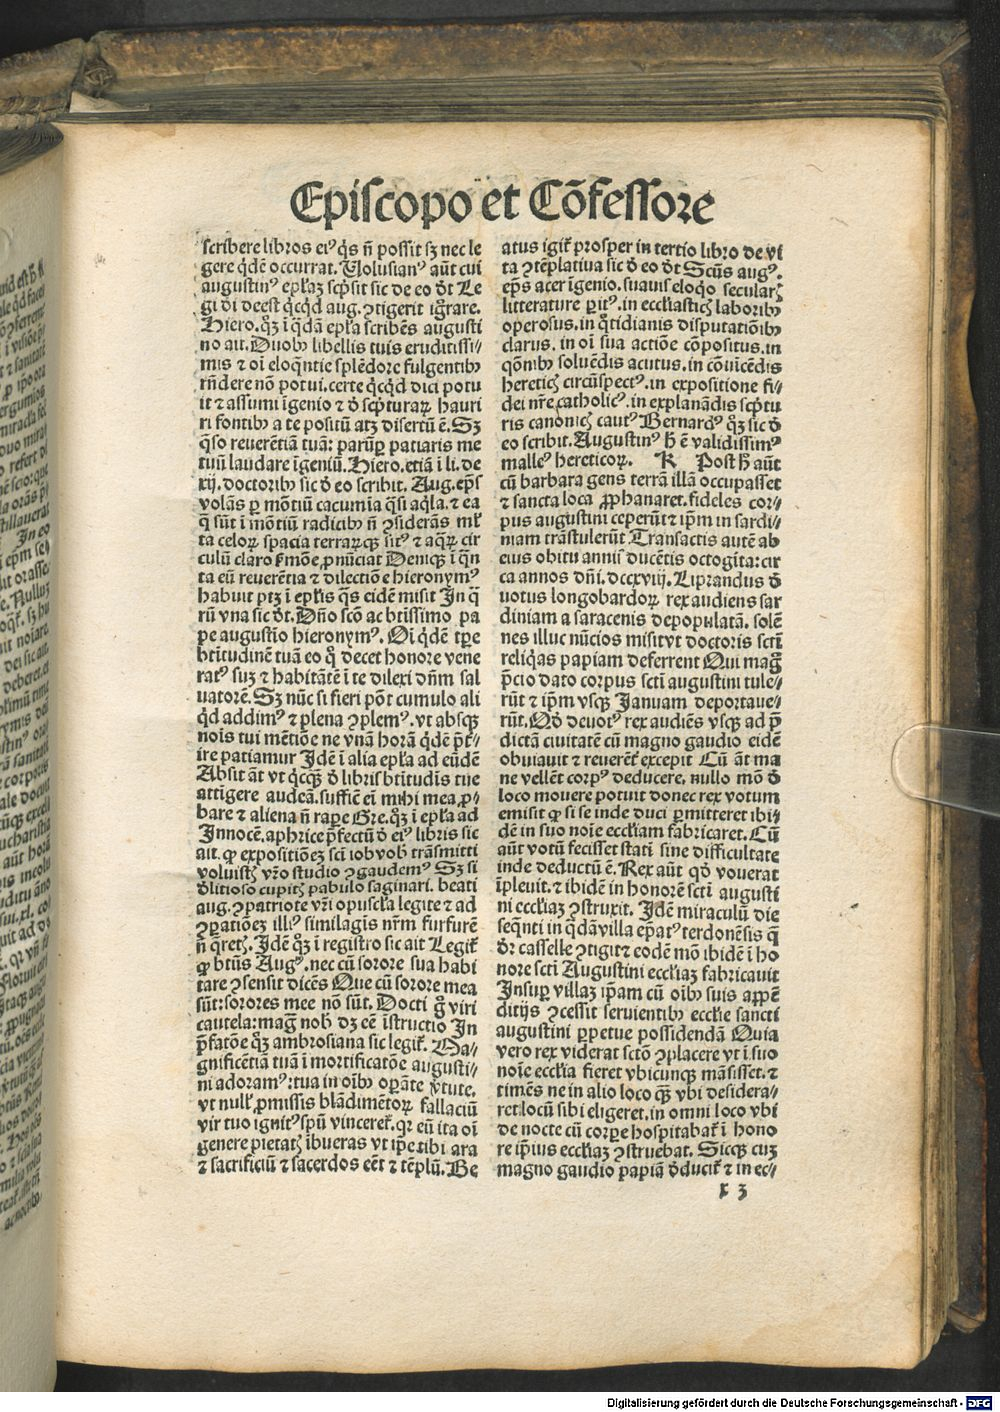 Episcopo et Cōfessore
scribere libros eiꝰ q̄s n̄ possit sꝫ nec le
gere q̇dē occurrat. Uolusianꝰ aūt cui
augustinꝰ ep̄laꝫ scp̄sit sic de eo d̄t Le
gi di deest q̇cq̇d aug. ꝯtigerit ignr̄are.
Hiero. qꝫ ī q̇dā ep̄la scribēs augusti
no ait. Duobꝰ libellis tuis eruditissi⸗
mis ⁊ oī eloqntie splēdore fulgentibꝰ
rn̄dere nō potui. certe q̇cq̇d dici potu
it ⁊ assumi īgenio ⁊ d̄ scp̄turaꝝ hauri
ri fontibꝰ a te positū atqꝫ disertū ē. Sꝫ
q̄so reuerētiā tuā: parūꝑ patiaris me
tuū laudare īgeniū. Hiero. etiā ī li. de
xij. doctoribꝰ sic d̄ eo scribit. Aug. ep̄s
volās ꝑ mōtiū cacumīa q̄si aq̇la. ⁊ ea
q̄ sūt ī mōtiū radicibꝰ n̄ ꝯsiderās ml̄
ta celoꝝ spacia terrarꝙ sitꝰ ⁊ aq̄ꝝ cir
culū claro s̄mōe ꝓnūciat Deniqꝫ ī q̄n
ta eū reuerētia ⁊ dilectiōe hieronymꝰ
habuit ptꝫ ī ep̄lis q̄s eidē misit In q̄
rū vna sic d̄t. Dn̄o scō ac btīssimo pa
pe augustīo hieronymꝰ. Oī q̇dē tp̄e
btītudinē tuā eo q̄ decet honore vene
ratꝰ suꝫ ⁊ habitātē ī te dilexi dn̄m sal
uatorē. Sꝫ nūc si fieri pōt cumulo ali
q̇d addimꝰ ⁊ plena ꝯplemꝰ. vt absqꝫ
noīs tui mētiōe ne vnā horā q̇dē p̄t⸗
ire patiamur Jdē ī alia ep̄la ad eūdē
Absit āt vt q̇cq̄ꝫ d̄ libris btītudīs tue
attīgere audeā. suffic̄ eī mihi mea ꝓ⸗
bare ⁊ aliena n̄ raꝑe Gre. qꝫ ī ep̄la ad
Jnnocē. aphrice p̄fectū d̄ eiꝰ libris sic
ait. ꝙ expositiōeꝫ scī iob vob̄ trāsmitti
voluistꝭ vr̄o studio ꝯgaudemꝰ Sꝫ si
d̄litioso cupitꝭ pabulo saginari. beati
aug. ꝯpatriote vr̄i opuscl̄a legite ⁊ ad
ꝯꝑatiōeꝫ illiꝰ similagīs nr̄m furfurē
n̄ q̄retꝭ. Jdē qꝫ ī registro sic ait Legit̄
ꝙ btūs Augꝰ. nec cū sorore sua habi
tare ꝯsensit dicēs Que cū sorore mea
sūt: sorores mee nō sūt. Docti g̊ viri
cautela: maḡ nob̄ dꝫ eē īstructio Jn
p̄fatōe qꝫ ambrosiana sic legit̄. Ma⸗
gnificētiā tuā ī mortificatōe augusti⸗
ni adoramꝰ: tua in oībꝰ oꝑāte v̄tute.
vt null̄ ꝓmissis blādimētoꝝ fallaciū
vir tuo ignitꝰ spū vinceret̄. qr eū ita oī
genere pietatꝭ ībueras vt ip̄e tibi ara
⁊ sacrificiū ⁊ sacerdos eēt ⁊ tēplū. Be
atus igit̄ prosper in tertio libro de vi
ta ꝯtēplatiua sic d̄ eo d̄t Scūs augꝰ.
ep̄s acer īgenio. suauis eloq̇o secularꝭ
litterature ꝑitꝰ. in eccl̄iasticꝭ laboribꝰ
operosus. in q̊tidianis disputatiōibꝰ
clarus. in oī sua actiōe cōpositus. in
q̄onibꝰ soluēdis acutus. in cōuīcēdis
hereticꝭ circūspectꝰ. in expositione fi⸗
dei nr̄e catholicꝰ. in explanādis scp̄tu
ris canonicꝭ cautꝰ Bernardꝰ qꝫ sic d̄
eo scribit. Augustinꝰ h̄ ē validissimꝰ
malleꝰ hereticoꝝ. K Post h̄ aūt
cū barbara gens terrā illā occupasset
⁊ sancta loca ꝓphanaret. fideles cor⸗
pus augustini ceperūt ⁊ ip̄m in sardi⸗
niam trāstulerūt Transactis autē ab
eius obitu annis ducētis octogīta: cir
ca annos dn̄i. dccxviij. Liprandus d̄
uotus longobardoꝝ rex audiens sar
diniam a saracenis depopulatā. solē
nes illuc nūcios misit vt doctoris sctī
reliq̇as papiam deferrent Qui mag̊
p̄cio dato corpus sctī augustini tule⸗
rūt ⁊ ip̄m vsqꝫ Januam deportaue⸗
rūt. Qd̄ deuotꝰ rex audiēs vsqꝫ ad p̄
dictā ciuitatē cū magno gaudio eidē
obuiauit ⁊ reuerēt̄ excepit Cū āt ma
ne vellēt corpꝰ deducere, nullo mō d̄
loco mouere potuit donec rex votum
emisit ꝙ si se inde duci ꝑmitteret ibi⸗
dē in suo noīe eccl̄iam fabricaret. Cū
aūt votū fecisset statī sine difficultate
inde deductū ē. Rex aūt qd̄ vouerat
īpleuit. ⁊ ibidē in honorē sctī augusti
ni eccl̄iaꝫ ꝯstruxit. Jdē miraculū die
seq̄nti in q̇dā villa ep̄atꝰ terdonēsis q̄
d̄r casselle ꝯtigit ⁊ eodē mō ibidē ī ho
nore scti Augustini eccl̄iaꝫ fabricauit
Jnsuꝑ villaꝫ ip̄am cū oībꝰ suis appē
ditijs ꝯcessit seruientibꝰ eccl̄ie sancti
augustini ꝑpetue possidendā Quia
vero rex viderat sctō ꝯplacere vt ī suo
noīe eccl̄ia fieret vbicunqꝫ māsisset. ⁊
timēs ne in alio loco q̄ꝫ vbi desidera⸗
ret locū sibi eligeret. in omni loco vbi
de nocte cū corꝑe hospitabat̄ ī hono
re ip̄ius eccl̄iaꝫ ꝯstruebat. Sicqꝫ cuꝫ
magno gaudio papiā d̄ducit̄ ⁊ in ec⸗
x 3
Digitalisierung gefördert durch die Deutsche Forschungsgemeinschaft - DFG